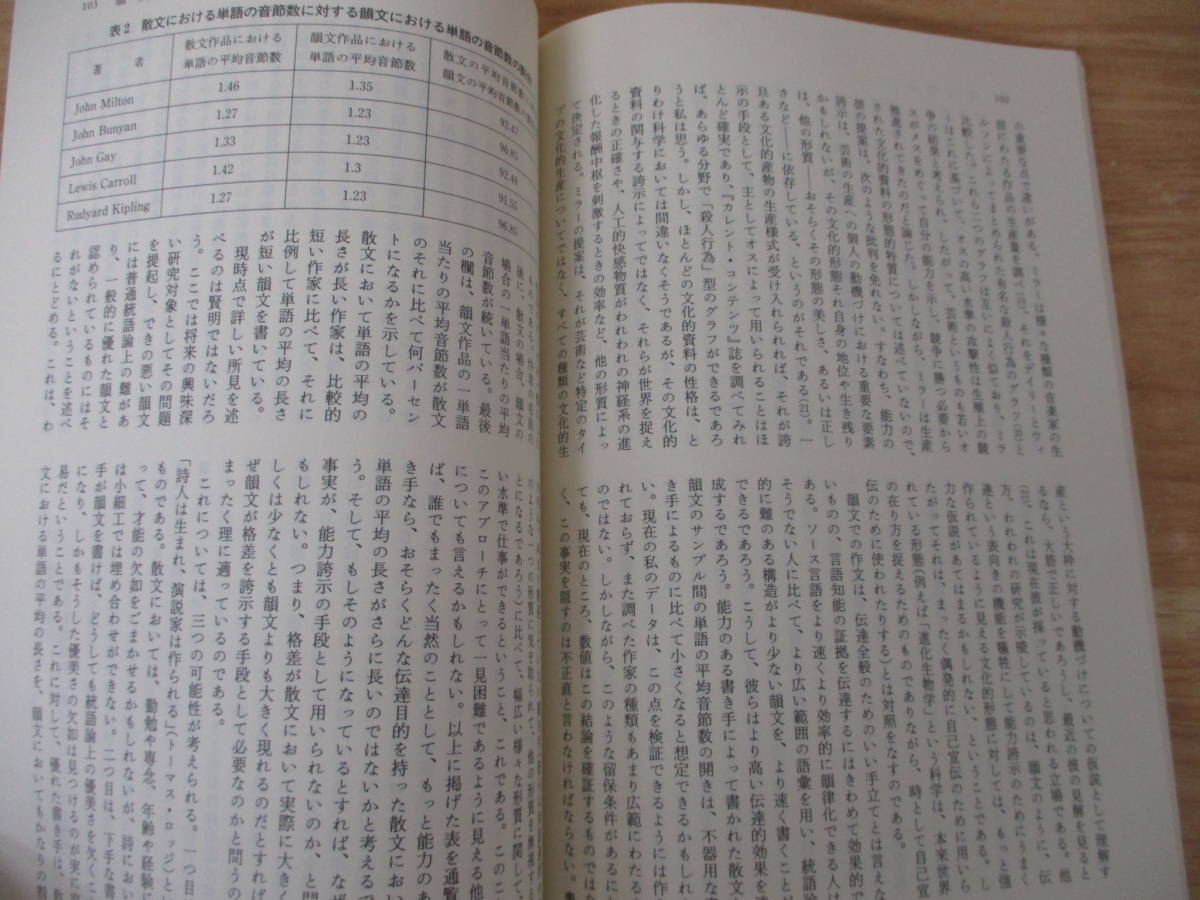 102
の重要な点で違いがある。ミラーは種々な種類の音楽家の生
涯にわたる作品の生産量を調べ、それをデイリーとウィ
ルソンによってまとめられた有名な殺人行為のグラフと
比較した。これら二つのグラフは互いによく似ており、ミラ
ーはこれに基づいて、オスの高い水準の攻撃性は生殖上の競
争の結果と考えられ、したがって、芸術というものも若いオ
スがメスをめぐって自分の能力を示し、競争に勝つ必要から
推進されてきたのだと論じた。しかしながら、ミラーは生産
された文化的資料の形態的特質については述べていないので、
彼の提案は、次のような批判を免れない。すなわち、能力の
誇示は、芸術の生産への個人の動機づけにおける重要な要素
かもしれないが、その文化的形態それ自身の地位や生き残り
は、他の形質——おそらくその形態の美しさ、あるいは正し
さなど——に依存している、というのがそれである(21)。一
旦ある文化的産物の生産様式が受け入れられれば、それが誇
示の手段として、主としてオスによって用いられることはほ
とんど確実であり、『カレント・コンテンツ』誌を調べてみれ
ば、あらゆる分野で「殺人行為」型のグラフができるであろ
うと私は思う。しかし、ほとんどの文化的資料の性格は、と
りわけ科学においては間違いなくそうであるが、その文化的
資料の関与する誇示によってではなく、それらが世界を捉え
るときの正確さや、人工的快感物質がわれわれの神経系の進
化した報酬中枢を刺激するときの効率など、他の形質によっ
て決定される。ミラーの提案は、それが芸術など特定のタイ
プの文化的生産についてではなく、すべての種類の文化的生
産という大枠に対する動機づけについての仮説として理解す
るなら、大筋で正しいであろうし、最近の彼の見解を見ると
(22)、これは現在彼が採っていると思われる立場である。他
方、われわれの研究が示唆しているのは、韻文のように、伝
達という表向きの機能を犠牲にして能力誇示のためにうまく
作られているように見える文化的形態に対しては、もっと強
力な仮説があてはまるかもしれない、ということである。し
たがってそれは、まったく偶発的に自己宣伝のために用いら
れている形態(例えば「進化生物学」という科学は、本来世界
の在り方を捉えるためのものでありながら、時として自己宣
伝のために使われたりする)とは対照をなすのである。
韻文での作文は、伝達全般のためのいい手立てとは言えな
いものの、言語知能の証拠を伝達するにはきわめて効果的で
ある。ソース言語をより速くより効率的に韻律化できる人は、
そうでない人に比べて、より広い範囲の語彙を用い、統語論
的に難のある構造がより少ない韻文を、より速く書くことが
できるであろう。こうして、彼らはより高い伝達的効果を達
成するであろう。能力のある書き手によって書かれた散文と
韻文のサンプル間の単語の平均音節数の開きは、不器用な書
き手によるものに比べて小さくなると想定できるかもしれな
い。現在の私のデータは、この点を検証できるようには作ら
れておらず、また調べた作家の種類もあまり広範にわたるも
のではない。しかしながら、このような留保条件があるにし
ても、現在のところ、数値はこの結論を確証するものではな
く、この事実を隠すのは不正直と言わなければならない。
103
表2 散文における単語の音節数に対する韻文における単語の音節数の割合
著 者 散文作品における単語の平均音節数 韻文作品における単語の平均音節数
John Milton 1.46 1.35 92.47
John Bunyan 1.27 1.23 96.85
John Gay 1.33 1.23 92.48
Lewis Carroll 1.42 1.3 91.55
Rudyard Kipling 1.27 1.23 96.85
後に、散文の場合、韻文の
場合の一単語当たりの平均
音節数が続いている。最後
の欄は、韻文作品の一単語
当たりの平均音節数が散文
のそれに比べて何パーセン
トになるかを示している。
散文において単語の平均の
長さが長い作家は、比較的
短い作家に比べて、それに
比例して単語の平均の長さ
が短い韻文を書いている。
現時点で詳しい所見を述
べるのは賢明ではないだろ
う。ここでは将来の興味深
い研究対象としてその問題
を提起し、できの悪い韻文
には普通統語論上の難があ
り、一般的に優れた韻文と
認められているものにはそ
れがないということを述べ
るにとどめる。これは、わ
い水準で仕事ができるということ、これである。このこ
このアプローチにとって一見困難であるように見える他
についても言えるかもしれない。以上に掲げた表を通覧
ば、誰でもまったく当然のこととして、もっと能力のあ
き手なら、おそらくどんな伝達目的を持った散文におい
単語の平均の長さがさらに長いのではないかと考えるで
う。そして、もしそのようになっているとすれば、なぜ
事実が、能力誇示の手段として用いられないのか、と問
もしれない。つまり、格差が散文において実際に大きく
しくは少なくとも韻文よりも大きく現れるのだとすれば
ぜ韻文が格差を誇示する手段として必要なのかと問うの
まったく理に適っているのである。
これについては、三つの可能性が考えられる。一つ目
「詩人は生まれ、演説家は作られる」(トーマス・ロッジ)と
ものである。散文においては、勤勉や専念、年齢や経験に
って、才能の欠如をごまかせるかもしれないが、詩におい
は小細工では埋め合わせができない。二つ目は、下手な書
手が韻文を書けば、どうしても統語論上の優美さを欠くこと
になり、しかもそうした優美さの欠如は見つけるのが実に容
易だということである。これに対して、優れた書き手は、散
文における単語の平均の長さを、韻文においてもかなりの割